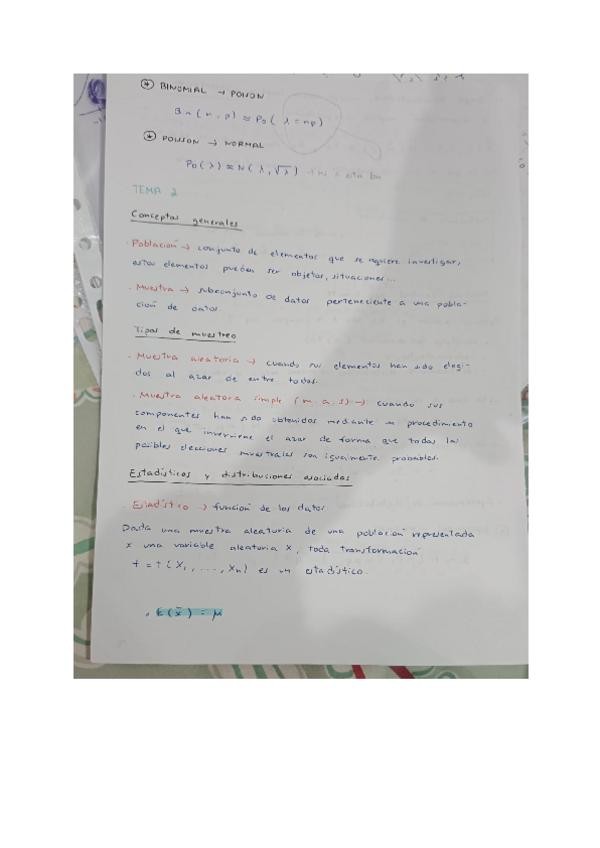 * BINOMIAL → POISON
Bin (n, p) ≈ Po ( λ = np)
* POISSON → NORMAL
Po (λ) ≈ N (λ, √λ)
TEMA 2
Conceptos generales
· Población → conjunto de elementos que se quiere investigar,
estos elementos pueden ser objetos, situaciones...
· Muestra → subconjunto de datos perteneciente a una pobla-
ción de datos.
Tipos de muestreo
· Muestra aleatoria → cuando sus elementos han sido elegi-
dos al azar de entre todos.
· Muestra aleatoria simple (m.a.s) → cuando sus
componentes han sido obtenidos mediante un procedimiento
en el que interviene el azar de forma que todas las
posibles elecciones muestrales son igualmente probables.
Estadísticos y distribuciones asociadas
· Estadístico → función de los datos
Dada una muestra aleatoria de una población representada
x una variable aleatoria X, toda transformación
t = t (X₁, ..., Xn) es un estadístico.
· E (x̄) = μ